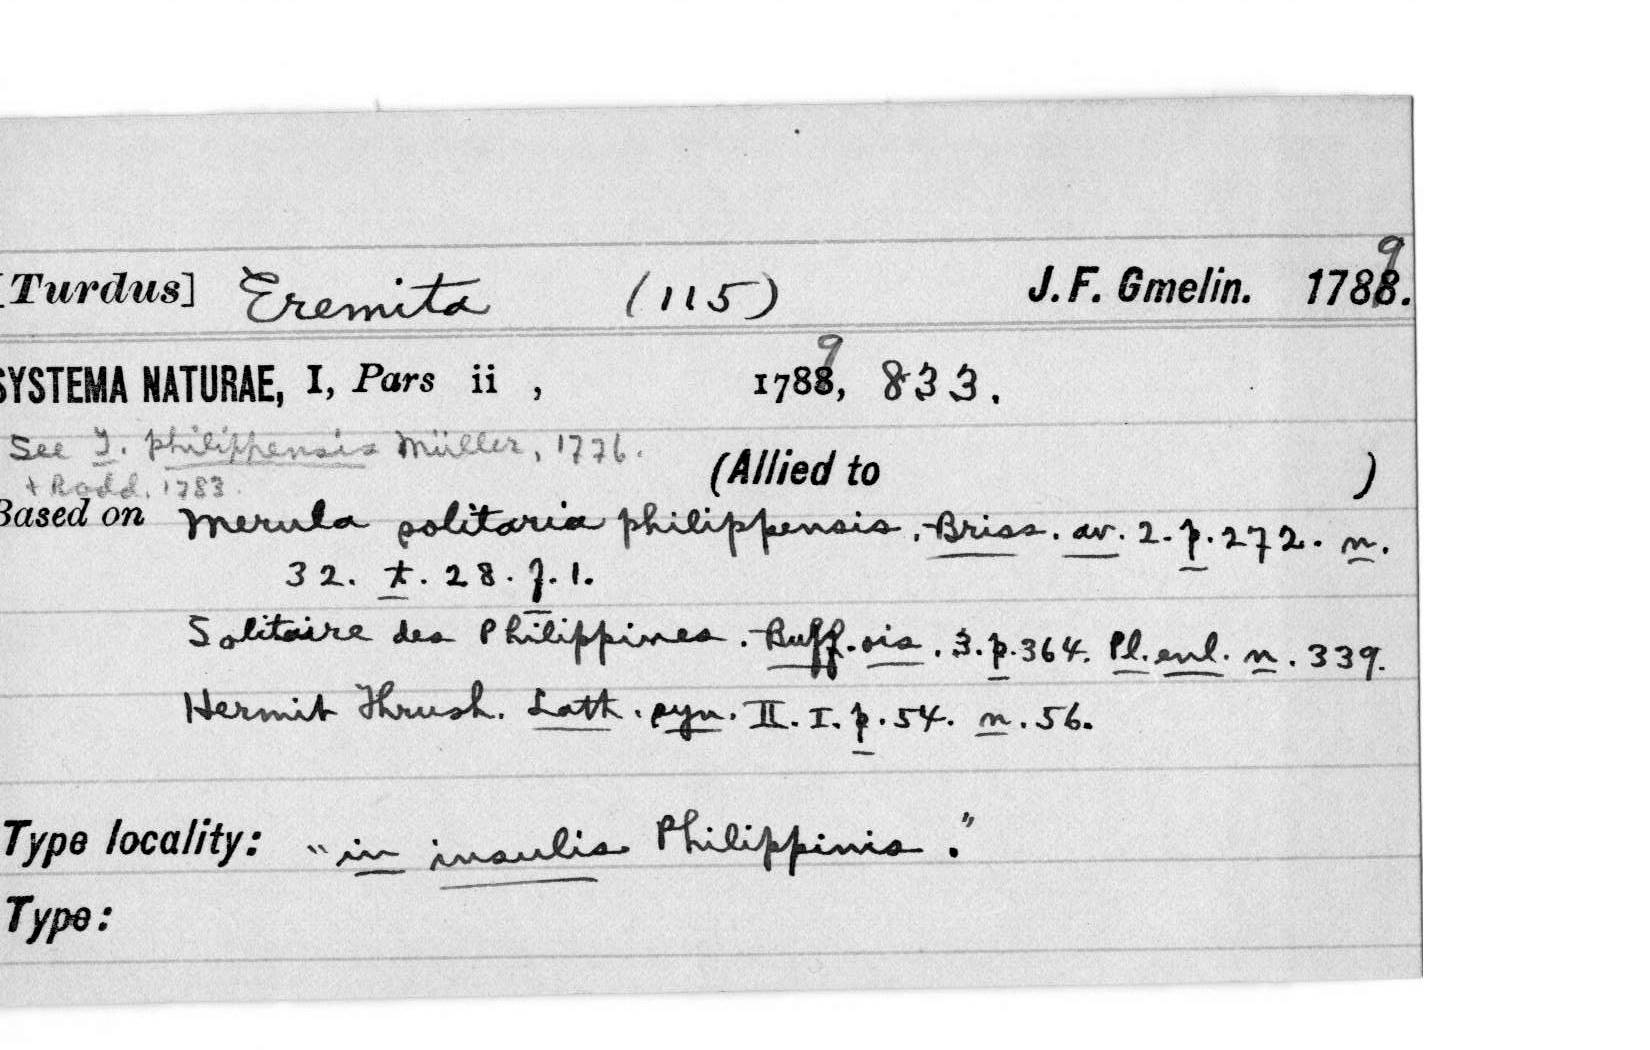 [Turdus] Eremita (115) J. F. Gmelin. 17889.
SYSTEMA NATURAE, I, Pars ii , 17889, 833.
See T. philippensis Müller, 1776.
(Allied to )
+ Bodd. 1783.
Based on Merula solitaria philippensis. Briss. av. 2. p. 272. n.
32. t. 28. f. 1.
Solitaire des Philippines. Buff. ois. 3. p. 364. Pl. enl. n. 339.
Hermit Thrush. Lath. syn. II. I. p. 54. n. 56.
Type locality: "in insulis Philippinis."
Type: